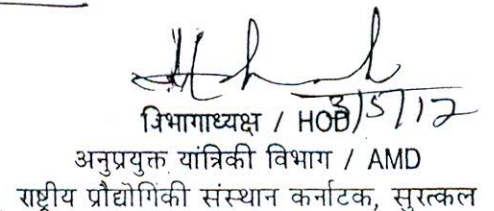 विभागाध्यक्ष / HOD
3/5/12
अनुप्रयुक्त यांत्रिकी विभाग / AMD
राष्ट्रीय प्रौद्योगिकी संस्थान कर्नाटक, सुरत्कल